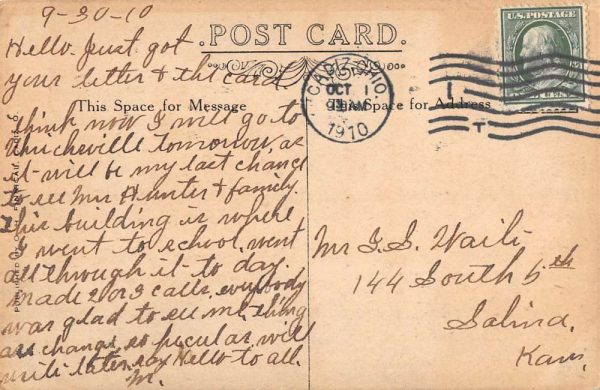 9-30-10
POST CARD.
U.S. POSTAGE
CADIZ, OHIO
OCT 1
AM
1910
Hello. Just got
your letter & the card
This Space for Message
This Space for Address
think now I will go to
tomorrow, as
it will be my last chance
to see Mrs Hunter & family.
This building is where
I went to school, went
all through it to day.
made 2 or 3 calls, everybody
was glad to see me, thing
are change, so peculiar will
write later, say Hello to all.
M.
Mr
144 South 5th
Salina,
Kans.